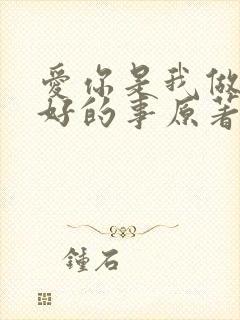 爱你是我做
好的事原著
鍾石